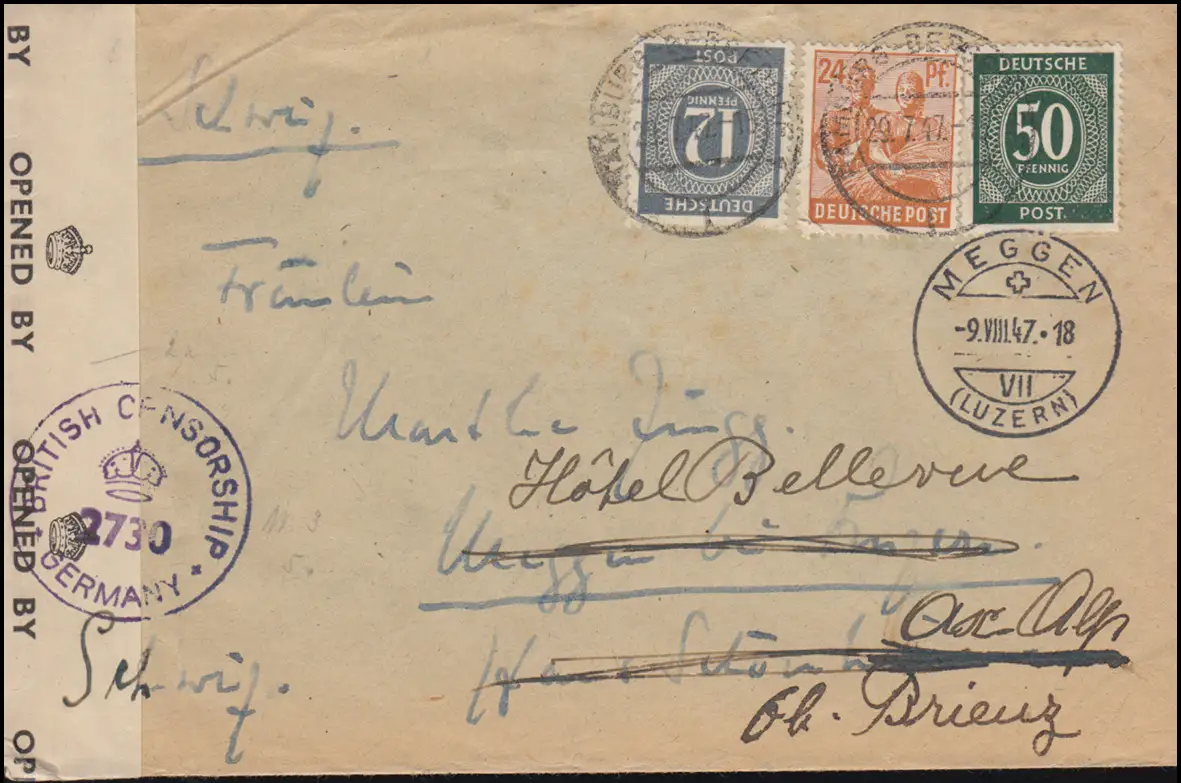 BY
OPENED BY
OPENED BY
OP
BRITISH CENSORSHIP
2730
GERMANY *
DEUTSCHE
12
PFENNIG
POST
24 Pf.
DEUTSCHE POST
DEUTSCHE
50
PFENNIG
POST
29.7.47.-1
MEGGEN
-9.VIII.47.•18
VII
(LUZERN)
Schweiz.
Fräulein
Martha Zingg.
Hôtel Bellevue
Meggen bei Luzern.
Axe Alp
Haus
ob. Brienz
Schweiz.